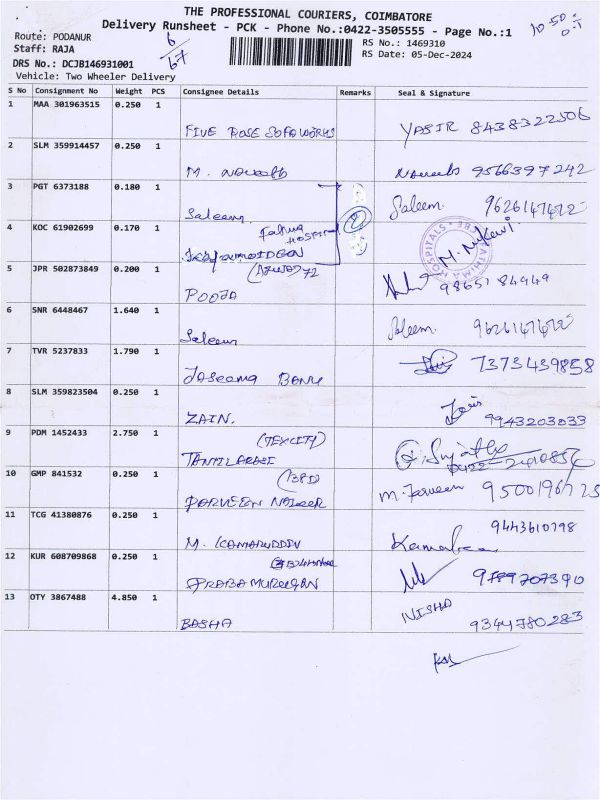 THE PROFESSIONAL COURIERS, COIMBATORE
Delivery Runsheet - PCK - Phone No.:0422-3505555 - Page No.:1
10.50
Route: PODANUR
6/67
RS No.: 1469310
Staff: RAJA
RS Date: 05-Dec-2024
DRS No.: DCJB146931001
Vehicle: Two Wheeler Delivery
S No Consignment No Weight PCS Consignee Details Remarks Seal & Signature
1 MAA 301963515 0.250 1
FIVE ROSE SOFA WORKS YASIR 8438322506
2 SLM 359914457 0.250 1
M. 9566397242
3 PGT 6373188 0.180 1
Saleem Saleem. 9626147672
4 KOC 61902699 0.170 1
Fatima HOSPITAL
FATHIMA HOSPITALS
5 JPR 502873849 0.200 1
POOJA 9865184949
6 SNR 6448467 1.640 1
Saleem Saleem. 9626147672
7 TVR 5237833 1.790 1
Jaseema BANU 7373439858
8 SLM 359823504 0.250 1
ZAIN. 9943203033
9 PDM 1452433 2.750 1
(TEXCITY)
TAMILARASI 0422-2410856
10 GMP 841532 0.250 1
PARVEEN M. Parveen
11 TCG 41380876 0.250 1
M. KAMARUDDIN 9443610798
12 KUR 608709868 0.250 1
PRABA MURUGAN 9789707390
13 OTY 3867488 4.850 1
BASHA NISHA 9344780283